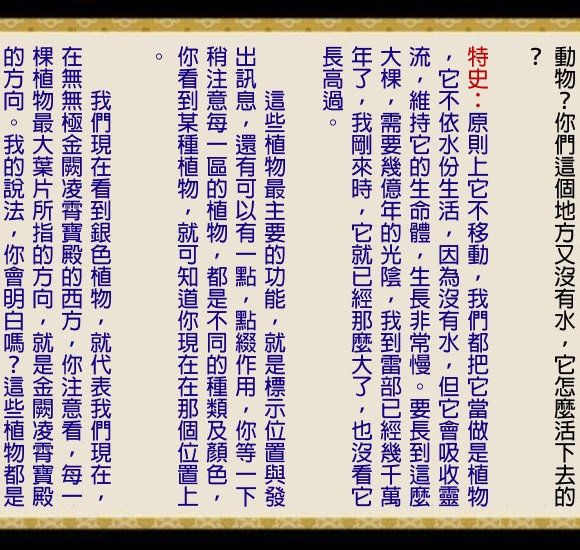 動物？你們這個地方又沒有水，它怎麼活下去的
？
特史：原則上它不移動，我們都把它當做是植物
，它不依水份生活，因為沒有水，但它會吸收靈
流，維持它的生命體，生長非常慢。要長到這麼
大棵，需要幾億年的光陰，我到雷部已經幾千萬
年了，我剛來時，它就已經那麼大了，也沒看它
長高過。
這些植物最主要的功能，就是標示位置與發
出訊息，還有可以有一點，點綴作用，你等一下
稍注意每一區的植物，都是不同的種類及顏色，
你看到某種植物，就可知道你現在在那個位置上
。
我們現在看到銀色植物，就代表我們現在，
在無無極金闕凌霄寶殿的西方，你注意看，每一
棵植物最大葉片所指的方向，就是金闕凌霄寶殿
的方向。我的說法，你會明白嗎？這些植物都是